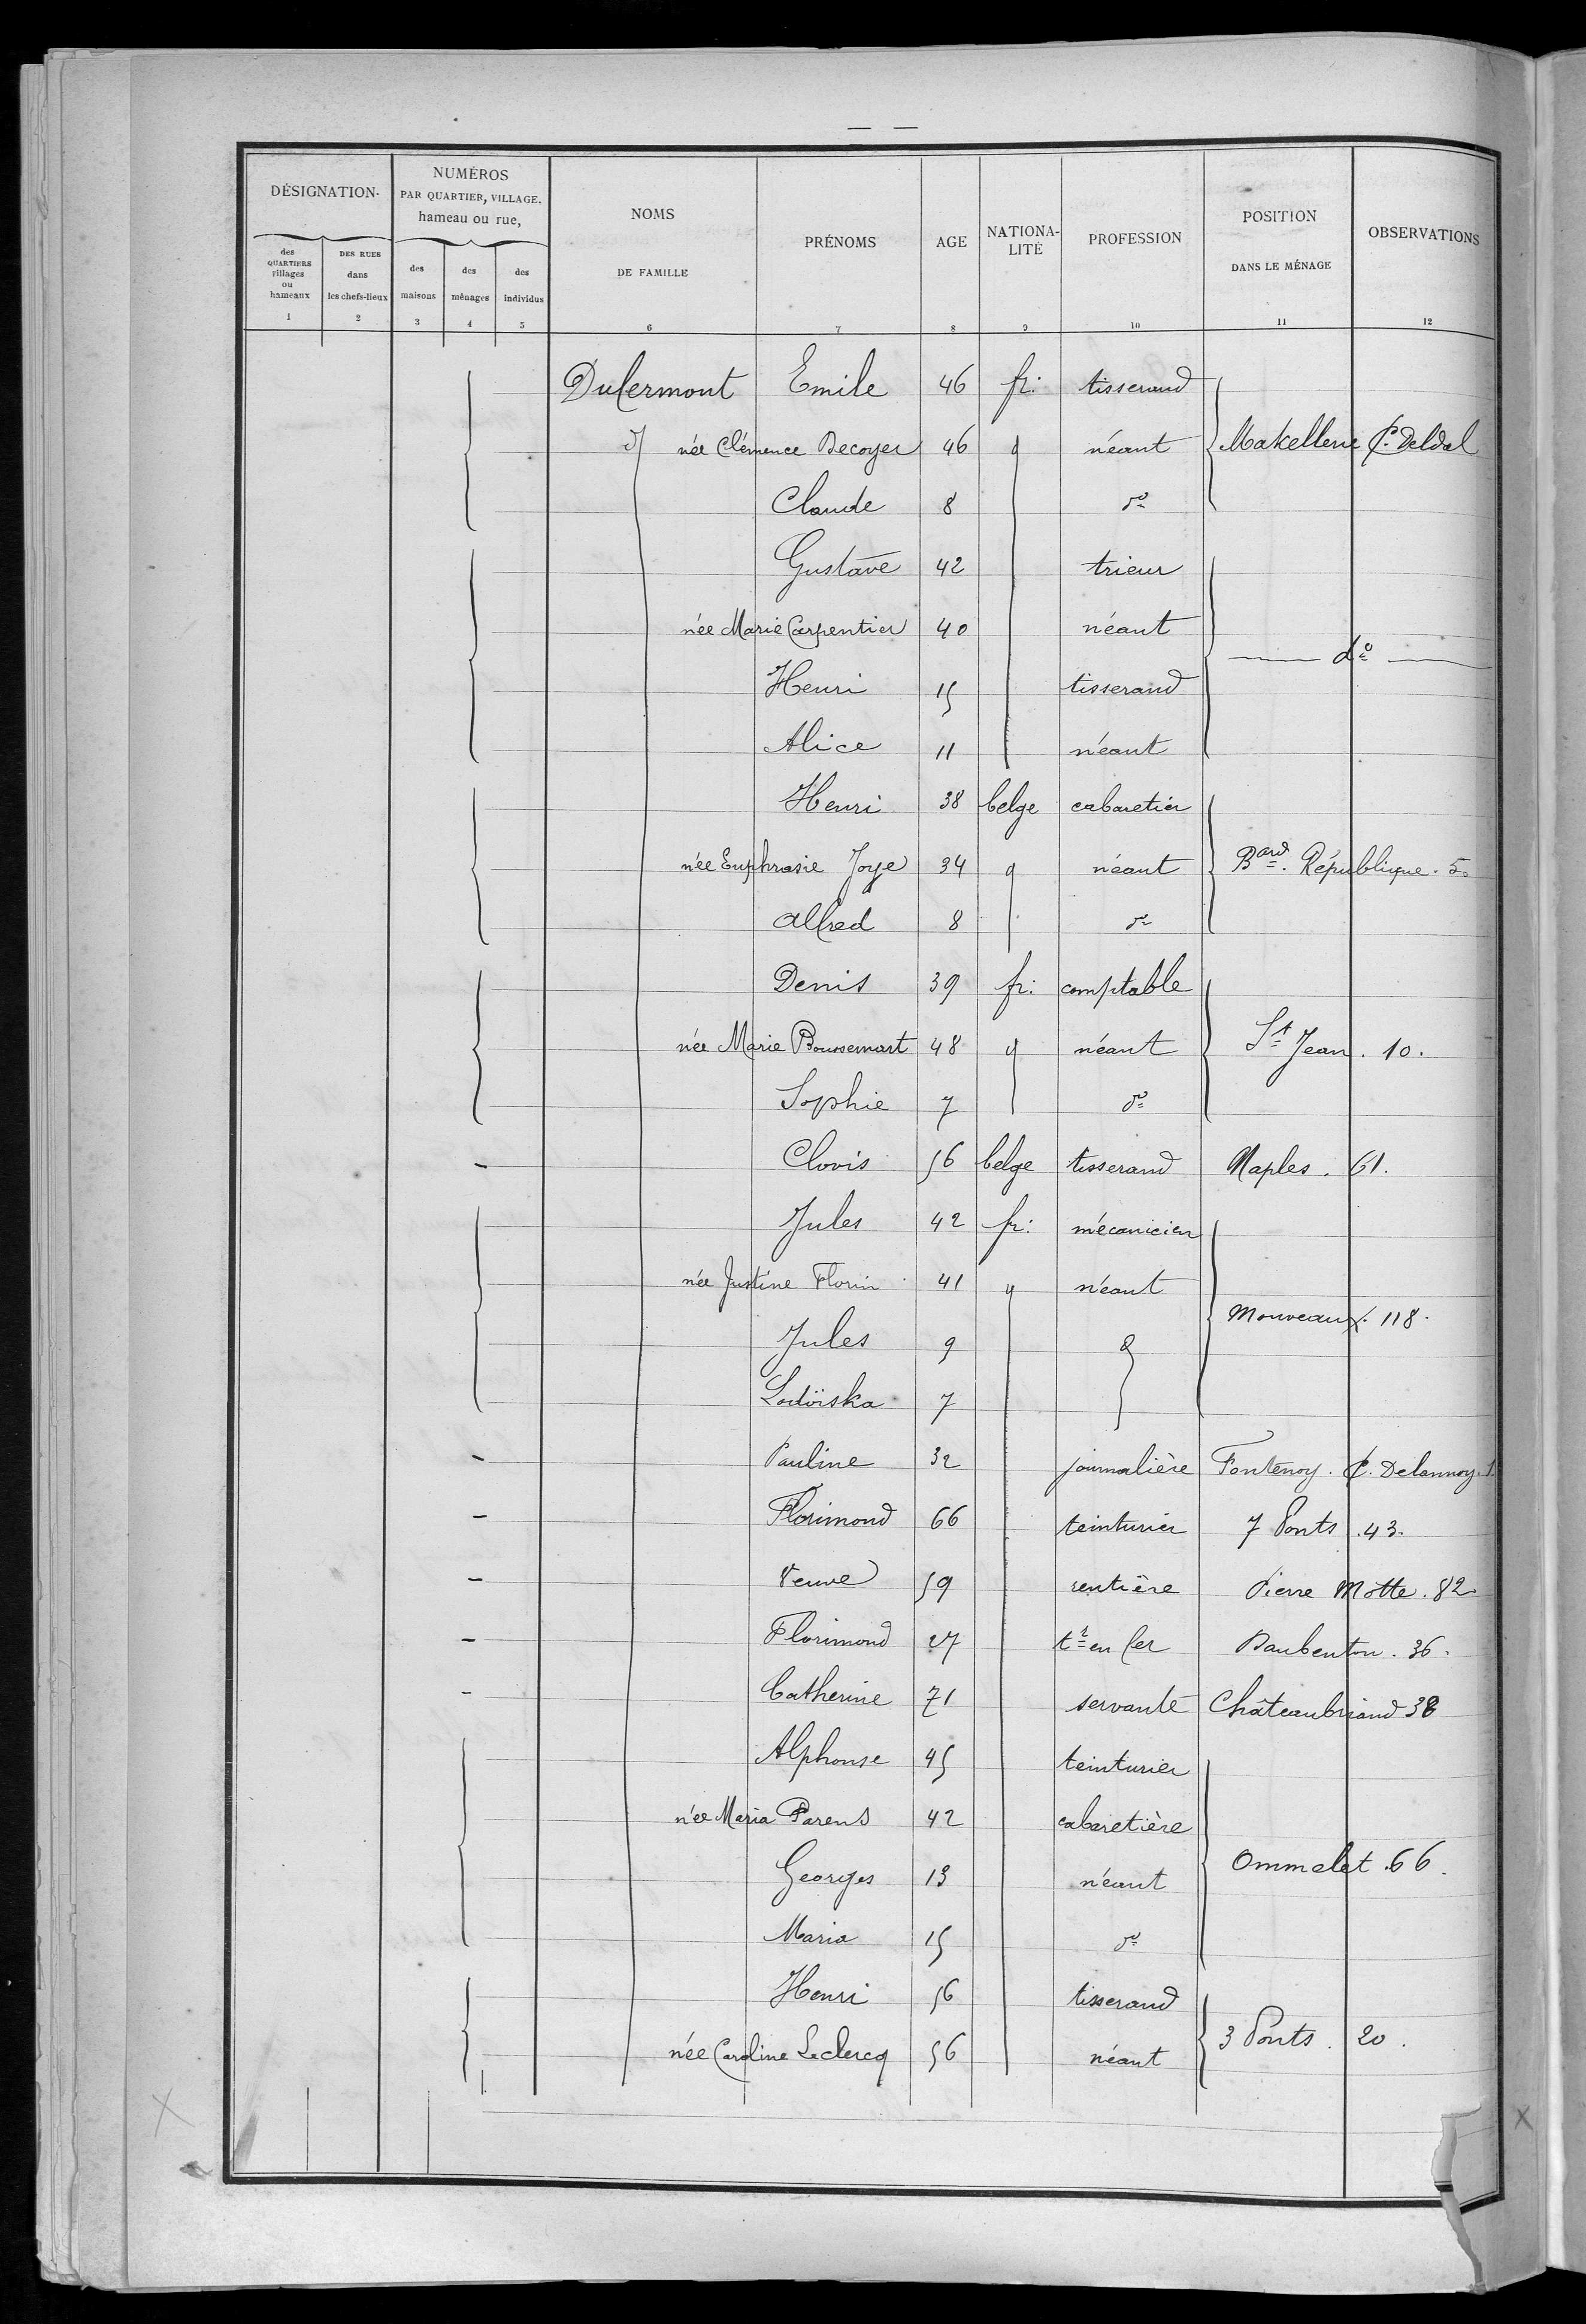 DÉSIGNATION.
NUMÉROS
PAR QUARTIER, VILLAGE.
hameau ou rue,
des QUARTIERS villages ou hameaux
DES RUES dans les chefs-lieux
des maisons
des ménages
des individus
NOMS DE FAMILLE
PRÉNOMS
AGE
NATIONA-LITÉ
PROFESSION
POSITION DANS LE MÉNAGE
OBSERVATIONS
1 2 3 4 5 6 7 8 9 10 11 12
Dufermont Emile 46 fr: tisserand
d née Clémence Decoyer 46 d néant Makellerie C. Deldal
Claude 8 do
Gustave 42 trieur
née Marie Carpentier 40 néant
do
Henri 15 tisserand
Alice 11 néant
Henri 38 belge cabaretier
née Euphrasie Joye 34 d néant Bard. République. 5.
Alfred 8 do
Denis 39 fr: comptable
née Marie Boussemart 48 d néant St Jean. 10.
Sophie 7 do
Clovis 56 belge tisserand Naples. 61.
Jules 42 fr: mécanicien
née Justine Florin 41 d néant
Mouveaux. 118.
Jules 9 d
Lodoïska 7
Pauline 32 journalière Fontenoy. C. Delannoy. 1.
Florimond 66 teinturier 7 Ponts. 43.
Veuve 59 rentière Pierre Motte. 82
Florimond 27 tr en fer Daubenton. 36.
Catherine 71 servante Châteaubriand 38
Alphonse 45 teinturier
née Maria Parent 42 cabaretière
Georges 13 néant Ommelet. 66.
Maria 15 do
Henri 56 tisserand
née Caroline Leclercq 56 néant 3 Ponts. 20.